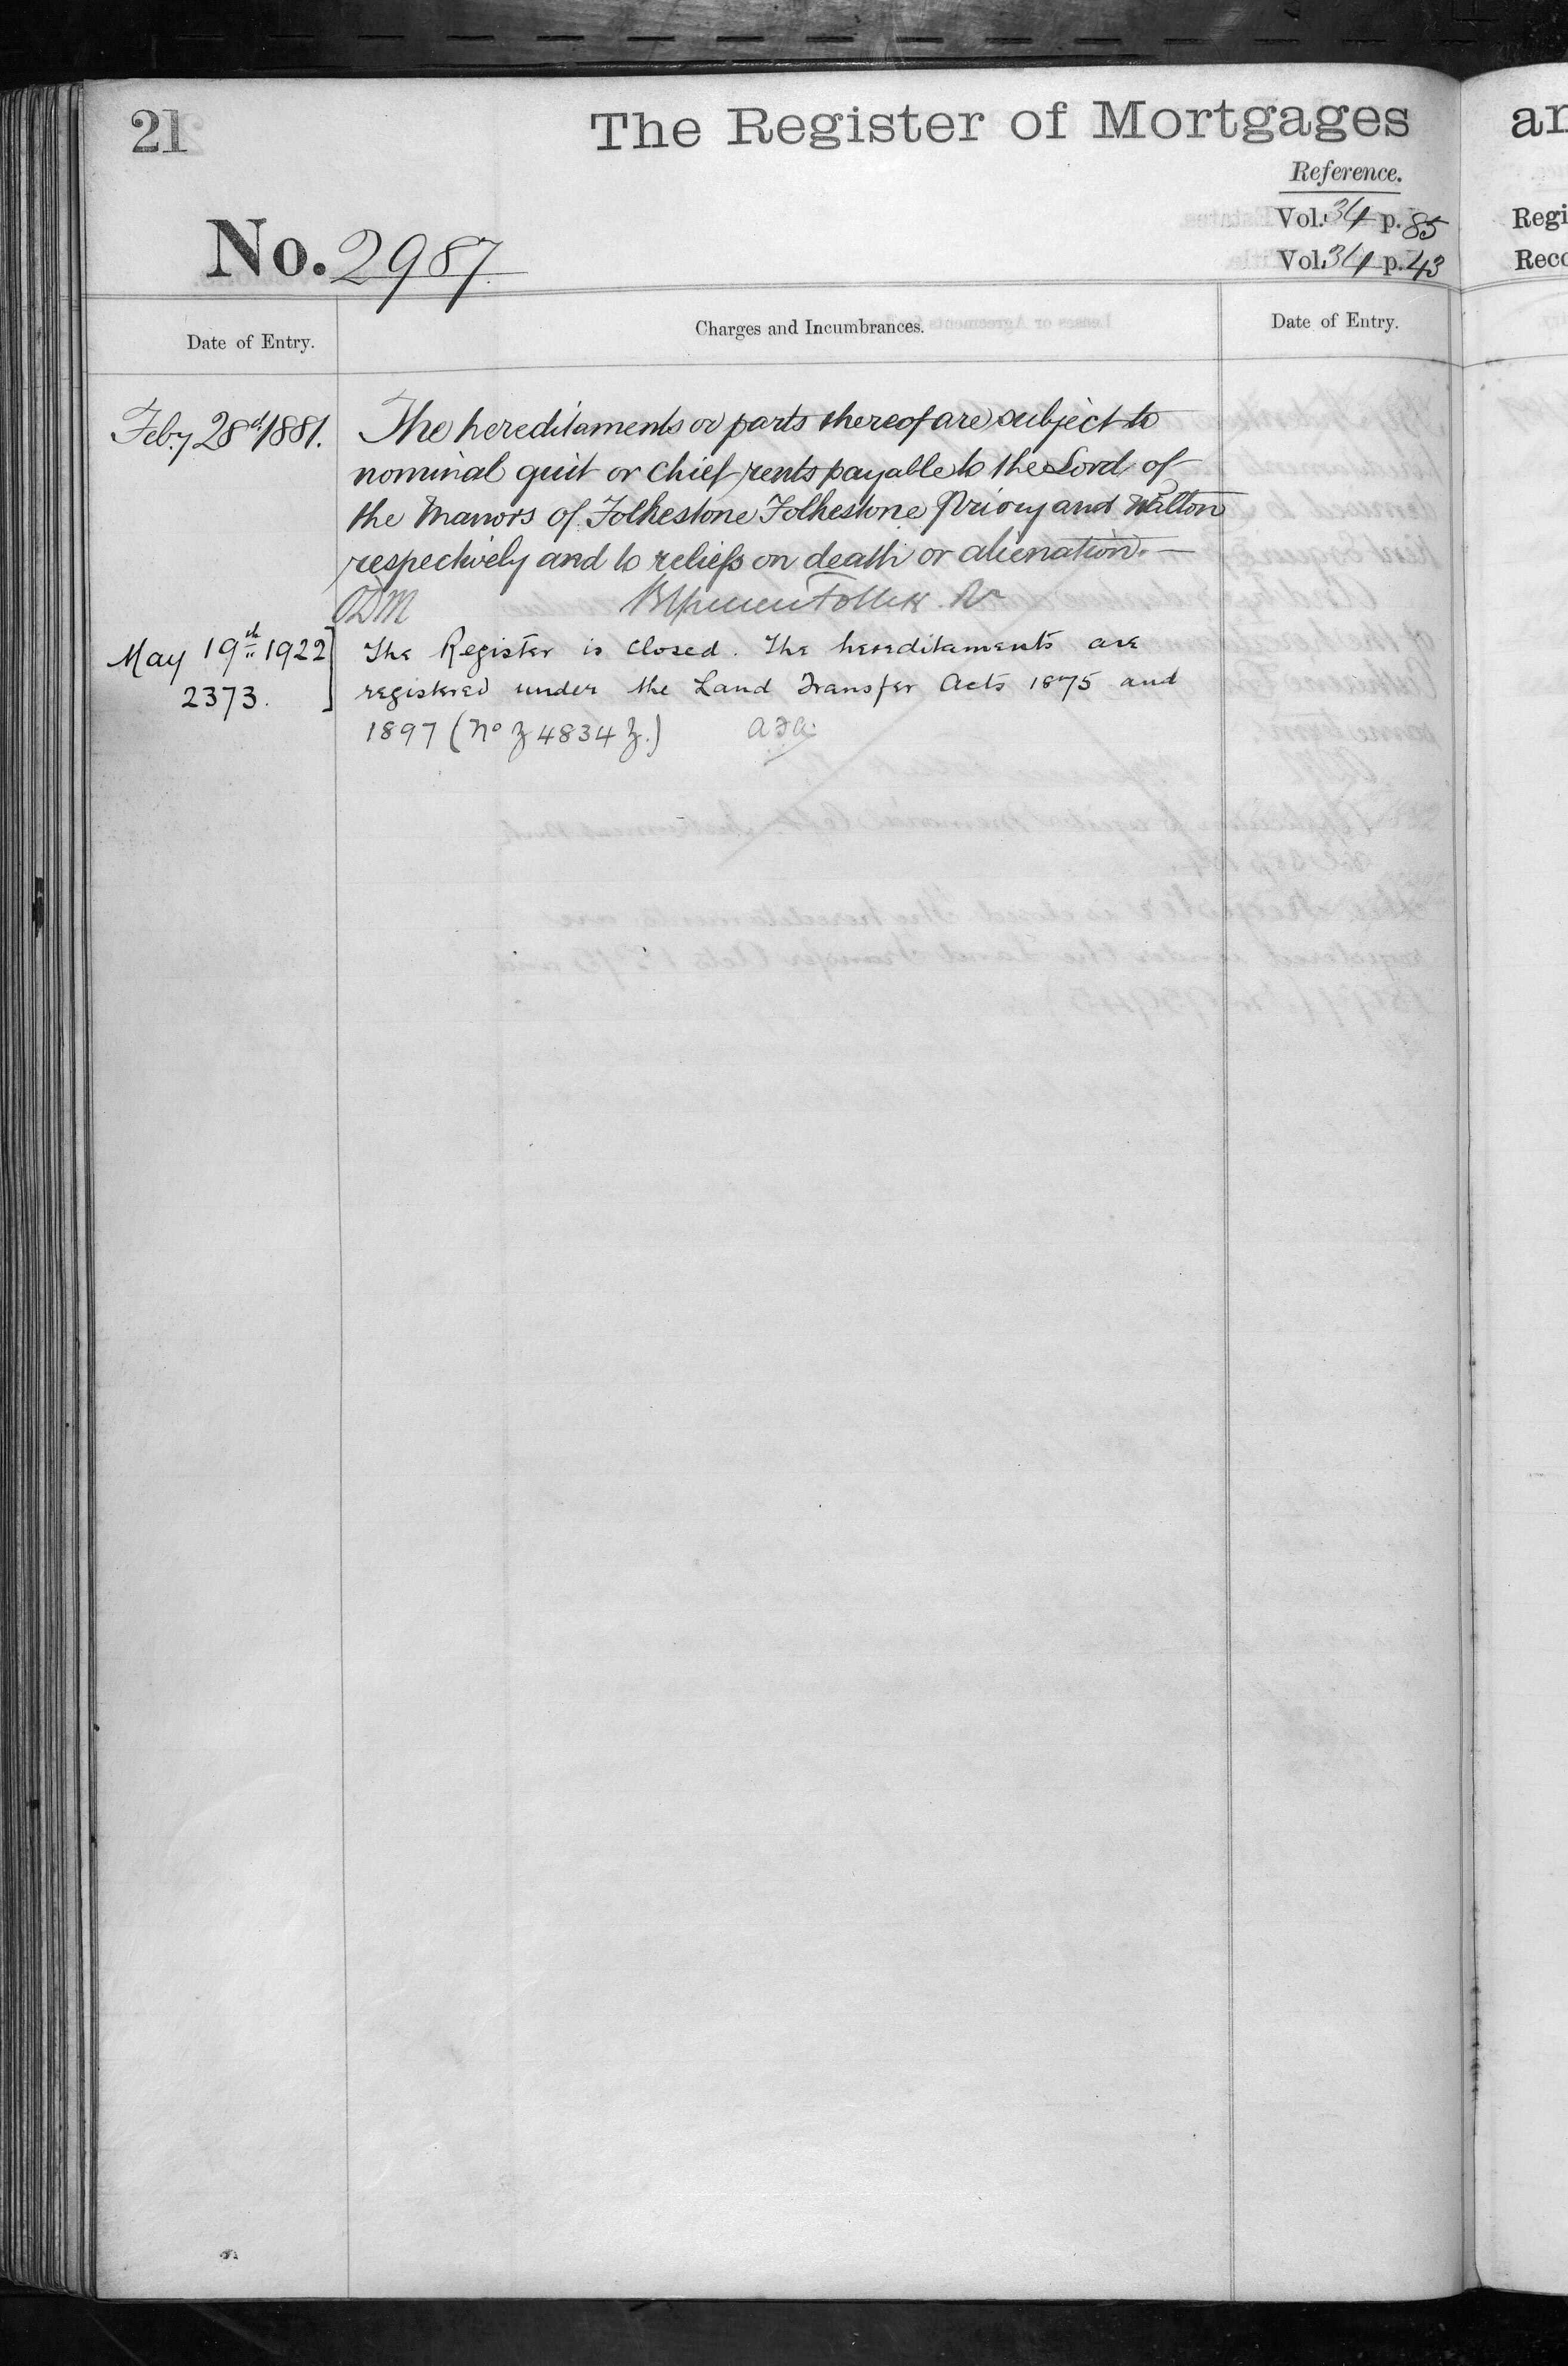 21
The Register of Mortgages
Reference.
Vol. 34 p. 85
Vol. 34 p. 43
No. 2987.
Date of Entry.
Charges and Incumbrances.
Date of Entry.
Feby 28th 1881.
The hereditaments or parts thereof are subject to
nominal quit or chief rents payable to the Lord of
the Manors of Folkestone Folkestone Priory and Walton
respectively and to reliefs on death or alienation. —
Follett R
May 19th 1922
2373.
The Register is closed. The hereditaments are
registered under the Land Transfer Acts 1875 and
1897 (No Z 4834 Z.)
ar
Regi
Reco